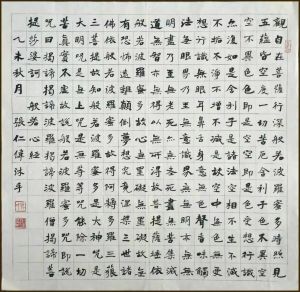 觀自在菩薩行深般若波羅蜜多時照見
五蘊皆空度一切苦厄舍利子色不異空
空不異色色即是空空即是色受想行識
亦復如是舍利子是諸法空相不生不滅
不垢不淨不增不減是故空中無色無受
想行識無眼耳鼻舌身意無色聲香味觸
法無眼界乃至無意識界無無明亦無無
明盡乃至無老死亦無老死盡無苦集滅
道無智亦無得以無所得故菩提薩埵依
般若波羅蜜多故心無罣礙無罣礙故無
有恐怖遠離顛倒夢想究竟涅槃三世諸
佛依般若波羅蜜多故得阿耨多羅三藐
三菩提故知般若波羅蜜多是大神咒是
大明咒是無上咒是無等等咒能除一切
苦真實不虛故說般若波羅蜜多咒即說
咒曰揭諦揭諦波羅揭諦波羅僧揭諦菩
提薩婆訶 般若心經
乙未秋月 張仁偉沐手